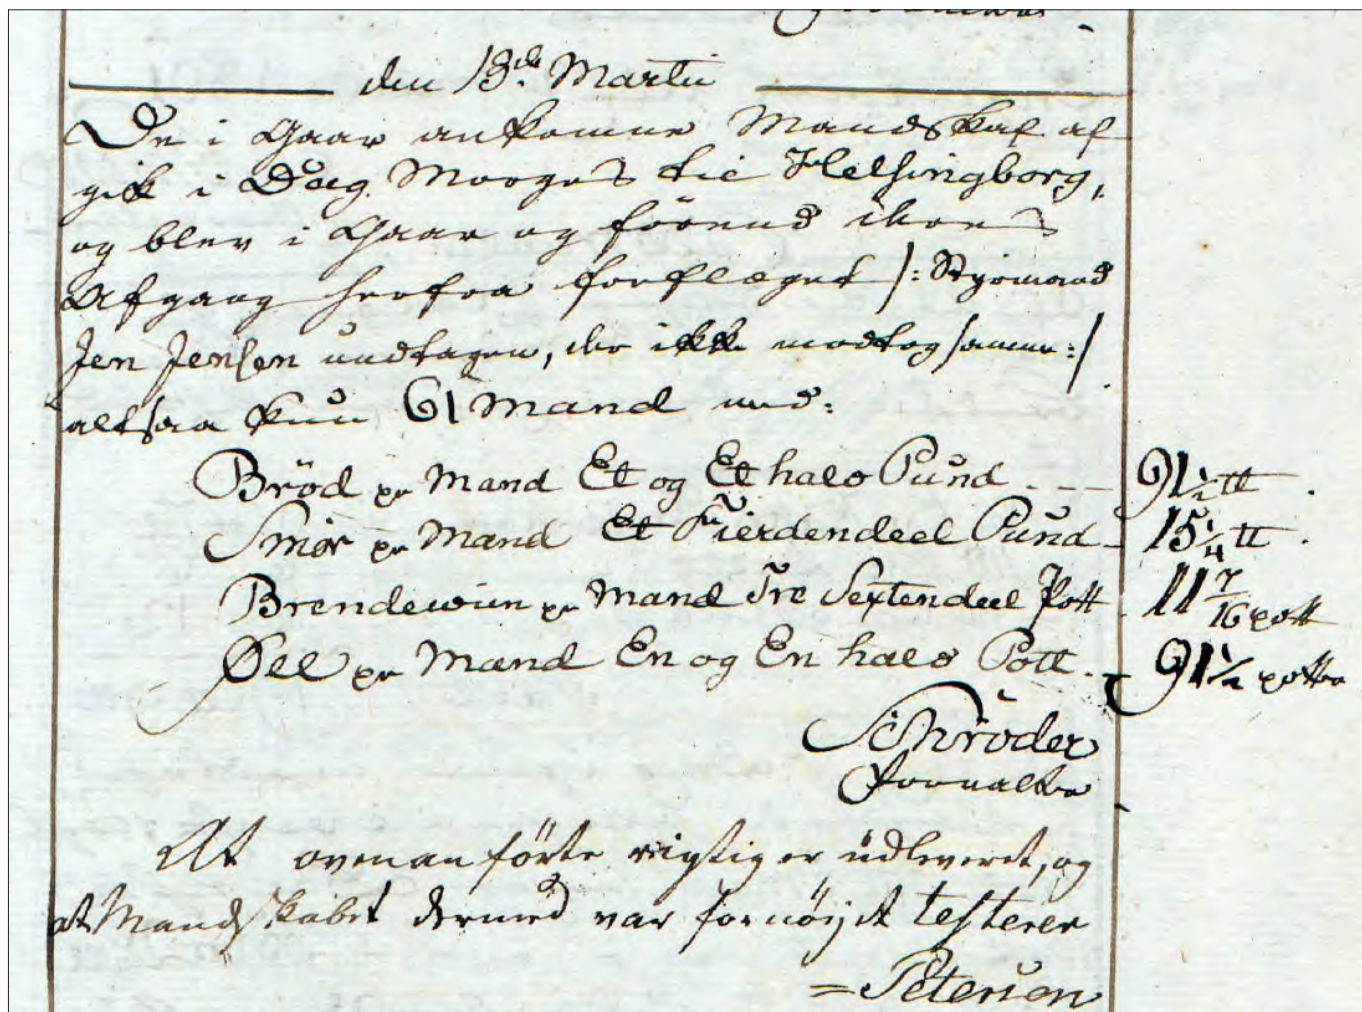 den 13de Martii
De i Gaar ankomne Mandskaf af
gik i Dag Morges til Helsingborg,
og blev i Gaar og förend deres
Afgang herfra forflæget /: Styrmand
Jen Jensen undtagen, der ikke modtog samme :/
altsaa kun 61 Mand med:
Bröd pr Mand Et og Et halv Pund - - - 91 1/2 ℔.
Smör pr Mand Et Fierdendeel Pund - 15 1/4 ℔.
Brendeviin pr Mand Tre Sextendeel Pott 11 7/16 pott
Øll pr Mand En og En halv Pott - 91 1/2 potter
Schröder
forvalter
At ovenanförte rigtig er üdleveret, og
at Mandskabet dermed var fornöijet testerer
= Peterson